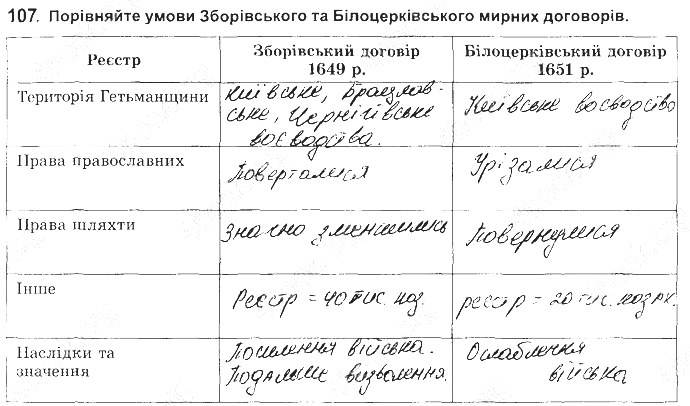 107. Порівняйте умови Зборівського та Білоцерківського мирних договорів.
Реєстр
Зборівський договір
1649 р.
Білоцерківський договір
1651 р.
Територія Гетьманщини
Київське, Брацлав-
ське, Чернігівське
воєводства.
Київське воєводство
Права православних
Поверталися
Урізалися
Права шляхти
Значно зменшились
Повернулися
Інше
Реєстр = 40 тис. коз.
реєстр = 20 тис. козак.
Наслідки та
значення
Посилення війська.
Подальше визволення.
Ослаблення
війська